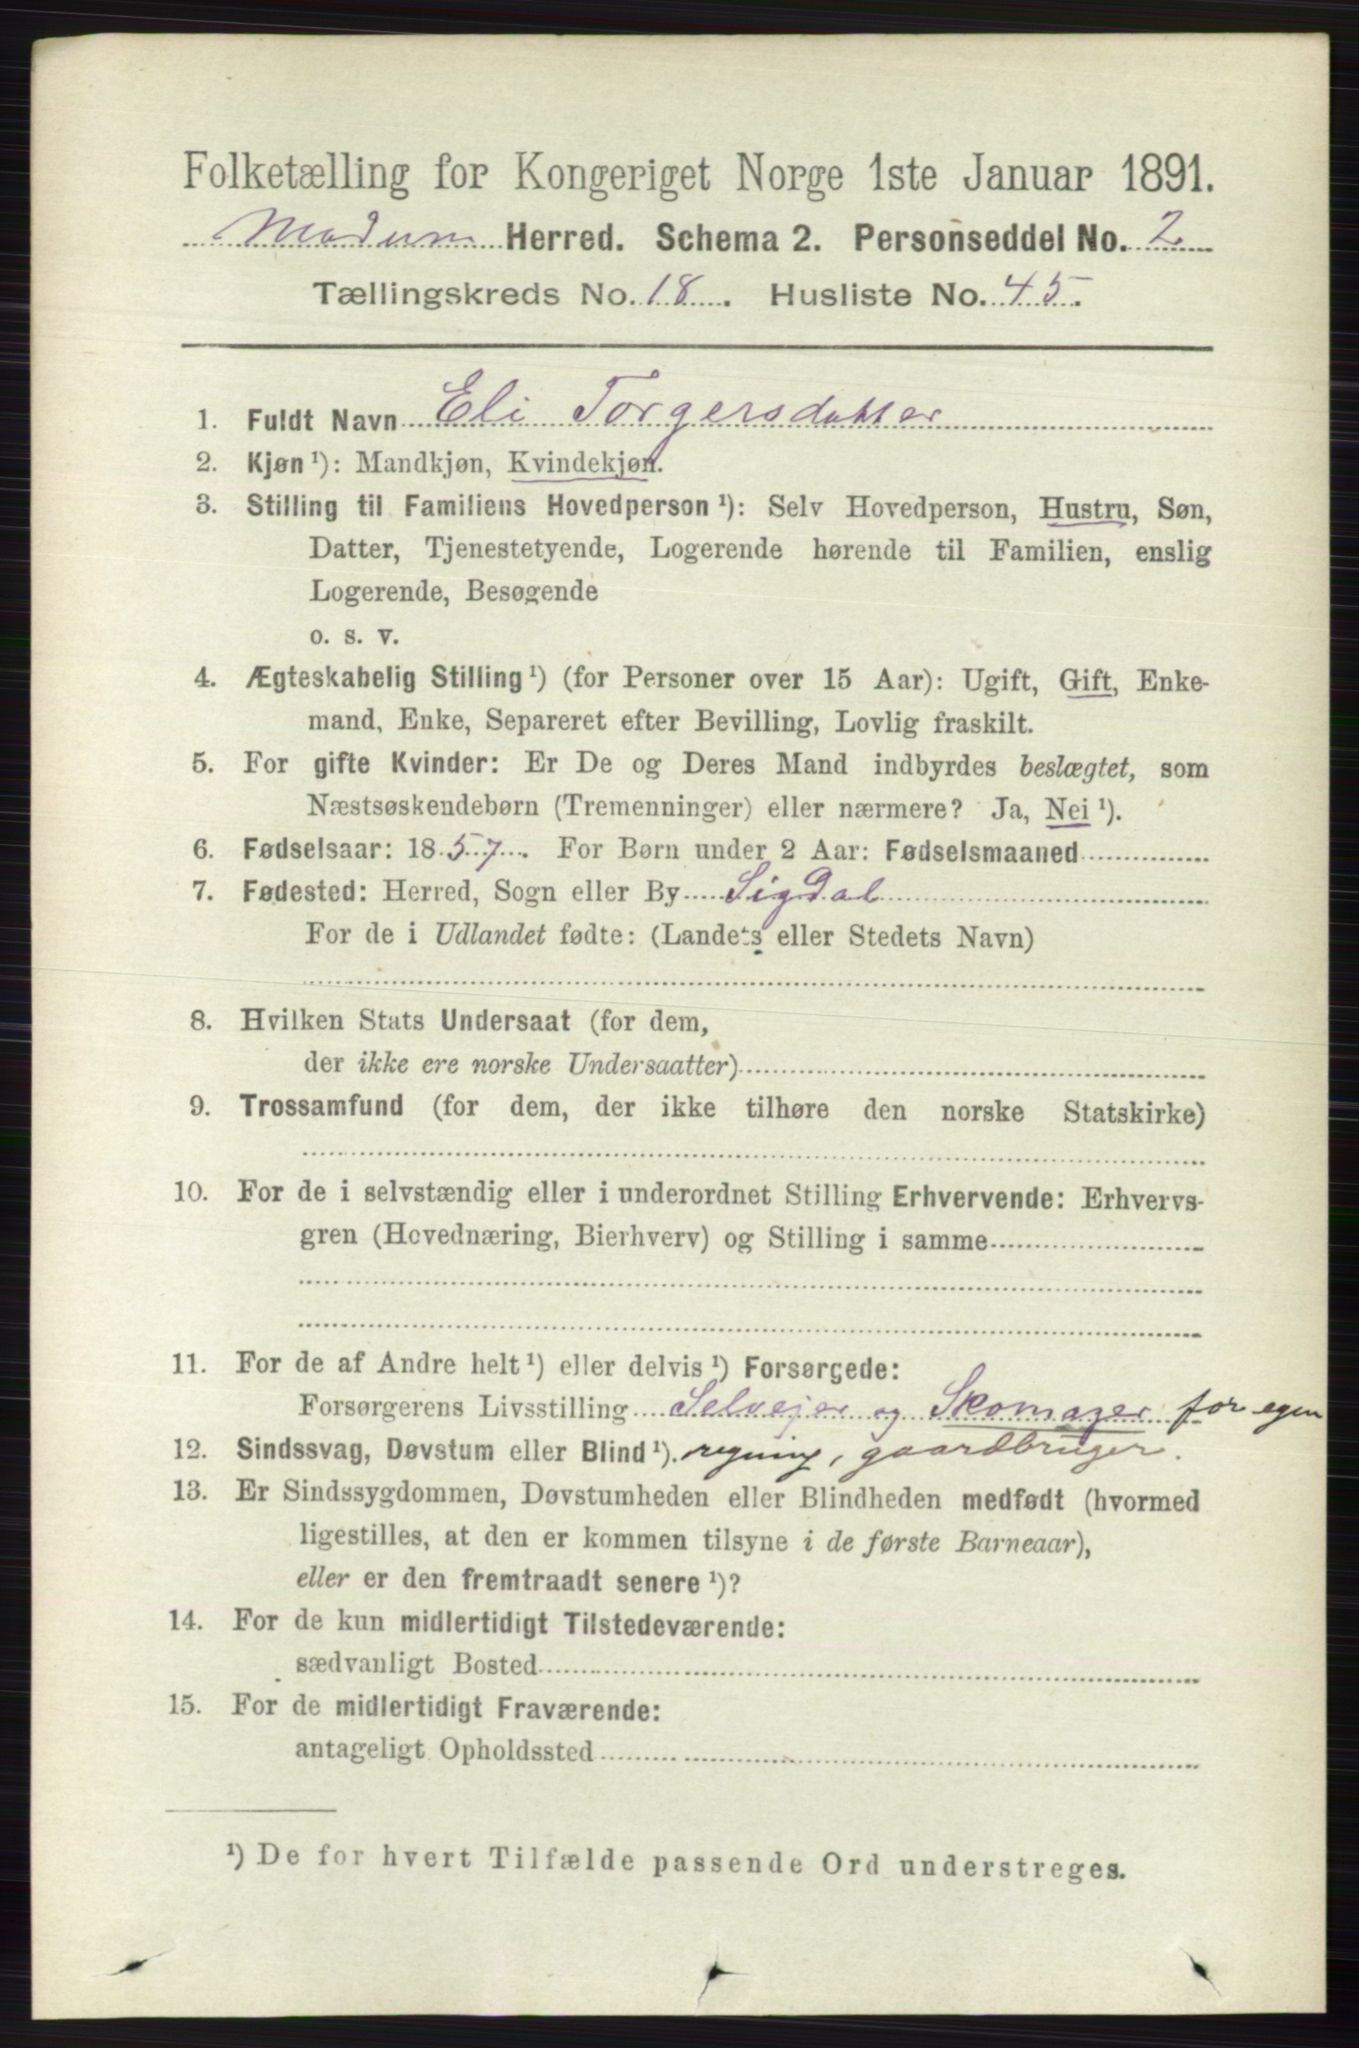 Folketælling for Kongeriget Norge 1ste Januar 1891.
Modum Herred. Schema 2. Personseddel No. 2
Tællingskreds No. 18. Husliste No. 45.
1. Fuldt Navn Eli Torgersdatter
2. Kjøn¹): Mandkjøn, Kvindekjøn.
3. Stilling til Familiens Hovedperson¹): Selv Hovedperson, Hustru, Søn,
Datter, Tjenestetyende, Logerende hørende til Familien, enslig
Logerende, Besøgende
o. s. v.
4. Ægteskabelig Stilling¹) (for Personer over 15 Aar): Ugift, Gift, Enke-
mand, Enke, Separeret efter Bevilling, Lovlig fraskilt.
5. For gifte Kvinder: Er De og Deres Mand indbyrdes beslægtet, som
Næstsøskendebørn (Tremenninger) eller nærmere? Ja, Nei¹).
6. Fødselsaar: 1857. For Børn under 2 Aar: Fødselsmaaned
7. Fødested: Herred, Sogn eller By Sigdal
For de i Udlandet fødte: (Landets eller Stedets Navn)
8. Hvilken Stats Undersaat (for dem,
der ikke ere norske Undersaatter)
9. Trossamfund (for dem, der ikke tilhøre den norske Statskirke)
10. For de i selvstændig eller i underordnet Stilling Erhvervende: Erhvervs-
gren (Hovednæring, Bierhverv) og Stilling i samme
11. For de af Andre helt¹) eller delvis¹) Forsørgede:
Forsørgerens Livsstilling Selvejer og Skomager for egen
12. Sindssvag, Døvstum eller Blind¹). regning, gaardbruger.
13. Er Sindssygdommen, Døvstumheden eller Blindheden medfødt (hvormed
ligestilles, at den er kommen tilsyne i de første Barneaar),
eller er den fremtraadt senere¹)?
14. For de kun midlertidigt Tilstedeværende:
sædvanligt Bosted
15. For de midlertidigt Fraværende:
antageligt Opholdssted
¹) De for hvert Tilfælde passende Ord understreges.